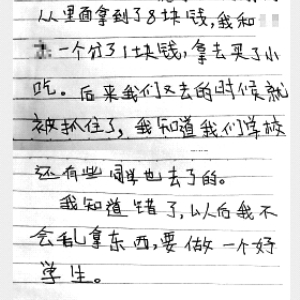 从里面拿到了8块钱，我和
一个分了1块钱，拿去买了小
吃。后来我们又去的时候就
被抓住了，我知道我们学校
还有些同学也去了的。
我知道错了，以后我不
会乱拿东西，要做一个好
学生。